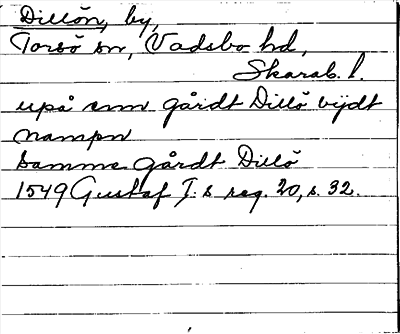 Dillön, by,
Torsö sn, Vadsbo hd,
Skarab. l.
upå enn gårdt Dillö vijdt
nampn
Samme gårdt Dillö
1549 Gustaf I:s reg. 20, s. 32.